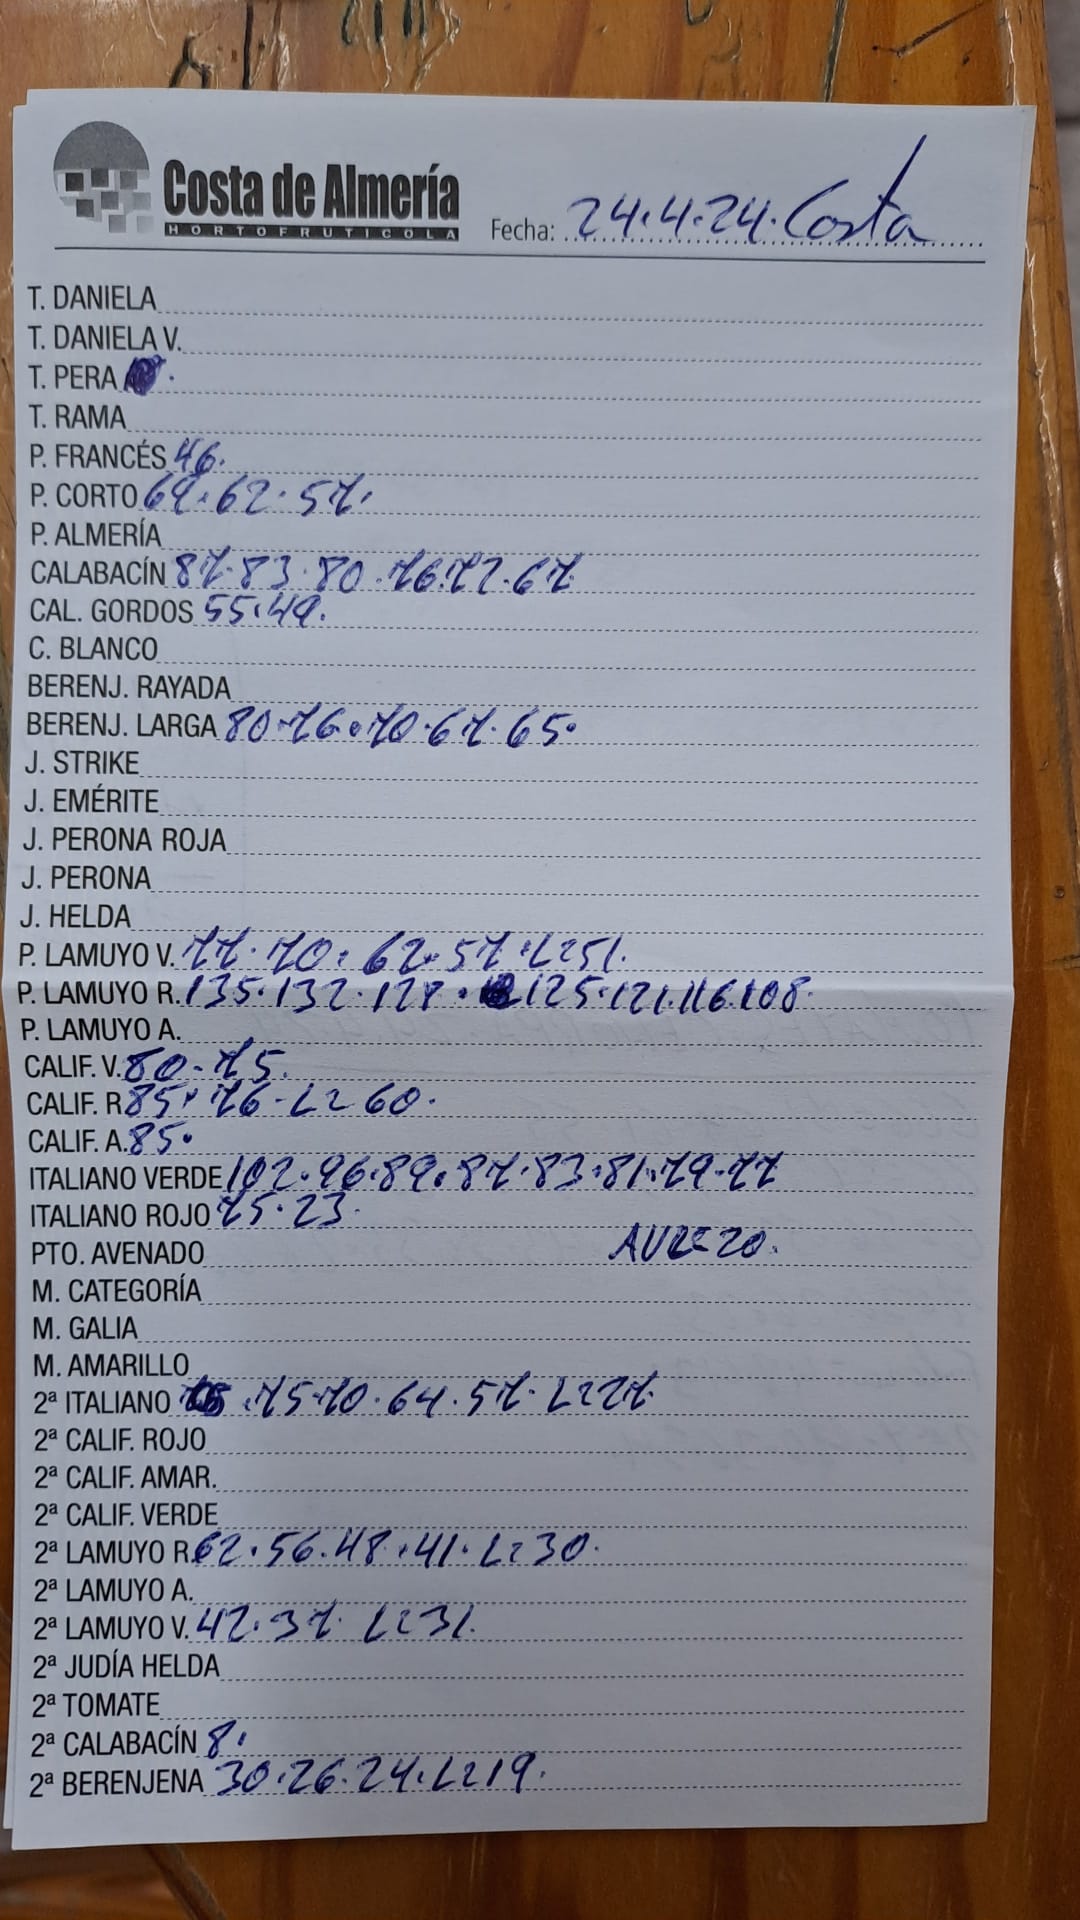 Costa de Almería
HORTOFRUTICOLA
Fecha: 24.4.24. Costa
T. DANIELA
T. DANIELA V.
T. PERA
T. RAMA
P. FRANCÉS 46.
P. CORTO 69.62.57.
P. ALMERÍA
CALABACÍN 87.83.80.76.72.67.
CAL. GORDOS 55.49.
C. BLANCO
BERENJ. RAYADA
BERENJ. LARGA 80.76.70.67.65.
J. STRIKE
J. EMÉRITE
J. PERONA ROJA
J. PERONA
J. HELDA
P. LAMUYO V. 77.70.62.57.L=51.
P. LAMUYO R. 135.132.128.125.121.116.108.
P. LAMUYO A.
CALIF. V. 80.75.
CALIF. R 85.76-L=60.
CALIF. A. 85.
ITALIANO VERDE 102.96.89.87.83.81.79.77
ITALIANO ROJO 75.23.
PTO. AVENADO AVE=20.
M. CATEGORÍA
M. GALIA
M. AMARILLO
2ª ITALIANO .75.70.64.57. L=27.
2ª CALIF. ROJO
2ª CALIF. AMAR.
2ª CALIF. VERDE
2ª LAMUYO R. 62.56.48.41.L=30.
2ª LAMUYO A.
2ª LAMUYO V. 42.37. L=31.
2ª JUDÍA HELDA
2ª TOMATE
2ª CALABACÍN 8.
2ª BERENJENA 30.26.24.L=19.